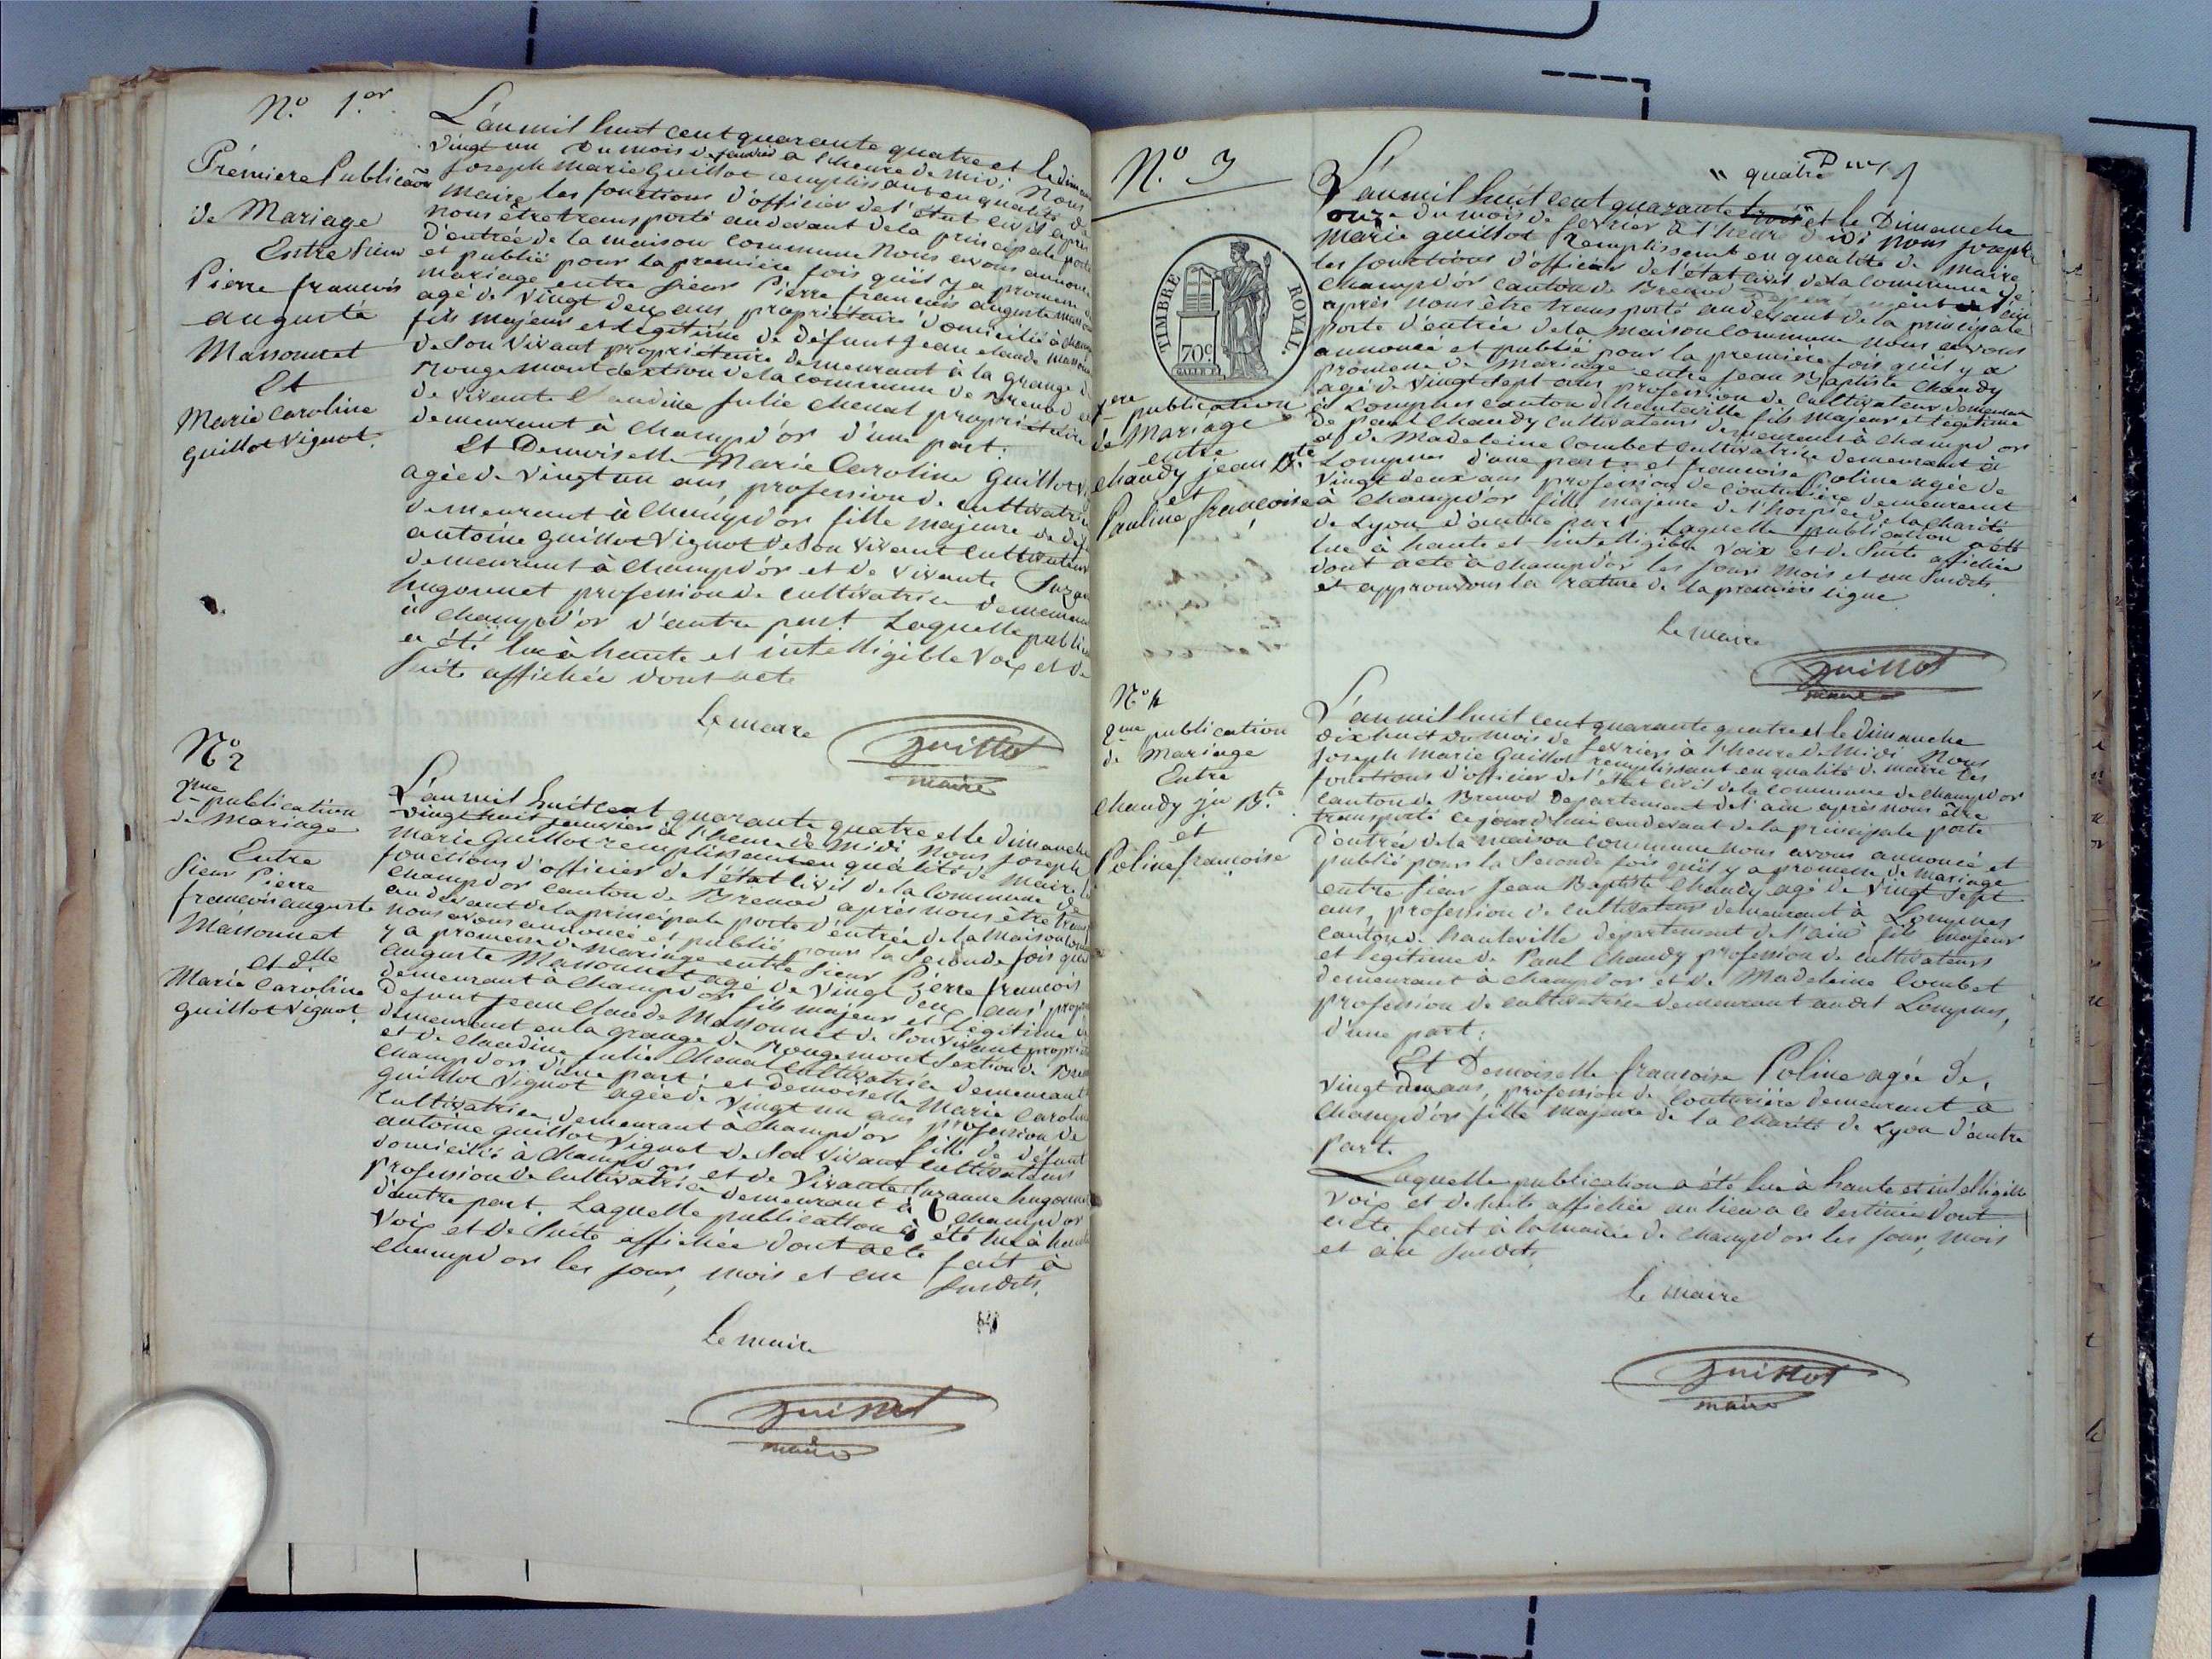 N.º 1.er
Premiere Publicaõn
de Mariage
Entre Sieur
Pierre francois
auguste
Massonnet
Et
Marie Caroline
guillot Vignot.
L'an mil huit cent quarante quatre et le diman
vingt un du mois de janvier a l'heure de midi Nous
Joseph Marie Guillot remplissant en qualité de
Maire les fonctions d'officier de l'état civil après
nous être transporté au devant de la principale porte
D'entrée de la maison Commune Nous avons annoncé
et publié pour la première fois qu'il y a promesse de
mariage entre Sieur Pierre francois auguste Masson
agé de vingt deux ans propriétaire domicilié à champ
fils majeur et légitime de défunt Jean claude Masson
de Son Vivant propriétaire demeurant à la grange de
Rougemont Sextion de la commune de Brenod et
de vivante Claudine Julie Chenal propriétaire
demeurant à Champd'or d'une part:
Et Demoiselle Marie Caroline Guillot V
agée de Vingt un ans profession de cultivatrice
demeurant à Champd'or fille majeure de déf
antoine guillot Vignot de Son Vivant Cultivateur
demeurant à Champd'or et de Vivante Suzan
hugonnet profession de Cultivatrice demeurant
à Champd'or d'autre part Laquelle public
a été lue à haute et intelligible Voix et de
Suite affichée dont acte
Le maire
guillot
maire
Nº 2
2me publication
de Mariage
Entre
Sieur Pierre
francois auguste
Massonnet
et dlle
Marie Caroline
guillot Vignot.
L'an mil huit cent quarante quatre et le dimanche
vingt huit janvier à l'heure de midi Nous Joseph
Marie Guillot remplissant en qualité de Maire les
fonctions d'officier de l'état civil de la Commune de
Champd'or Canton de Brenod après nous être trans
au devant de la principale porte d'entrée de la Maison Com
nous avons annoncé et publié pour la Seconde fois qu'il
y a promesse de mariage entre Sieur Pierre francois
auguste Massonnet age de Vingt deux ans propri
demeurant à Champd'or fils majeur et légitime de
Defunt Jean Claude Massonnet de Son Vivant propriet
demeurant en la grange de Rougemont Sextion de Bre
et de Claudine Julie Chenal Cultivatrice demeurant
Champd'or d'une part; et demoiselle Marie Caroline
guillot Vignot agée de Vingt un ans profession de
Cultivatrice demeurant à Champd'or fille de défunt
antoine guillot Vignot de Son Vivant Cultivateur
domicilié à Champd'or et de Vivante Suzanne hugonn
profession de Cultivatrice demeurant à Champd'or
d'autre part. Laquelle publication à été lue à haute
Voix et de Suite affichée dont acte fait à
Champd'or les jour, mois et an Susdits.
Le maire
guillot
maire
N.º 3
TIMBRE ROYAL.
70c
1ere publication
de Mariage
entre
chaudy jean Bte
et
Pauline françoise
" quatre "
L'an mil huit cent quarante trois et le Dimanche
onze du mois de fevrier à l'heure de midi nous Joseph
Marie guillot remplissant en qualité de Maire
les fonctions d'officier de l'état civil de la Commune de
Champd'or Canton de Brenod Departement de l'ain
après nous être transporté au devant de la principale
porte d'entrée de la maison Commune nous avons
annoncé et publié pour la première fois qu'il y a
promesse de Mariage entre Jean Baptiste Chaudy
agé de Vingt Sept ans profession de Cultivateur demeurant
à Lompnes canton d'hauteville fils majeur et légitime
de paul Chaudy cultivateur demeurant à Champd'or
et de Madeleine Combet Cultivatrice demeurant à
Lompnes d'une part: et francoise Poline agée de
Vingt deux ans profession de Couturière demeurant
à Champd'or fille majeure de l'hospice de la Charité
de Lyon d'autre part. Laquelle publication a été
lue à haute et intelligible Voix et de Suite affichée
dont acte à Champd'or les jour mois et an Susdits.
et approuvons la rature de la première ligne.
Le maire
guillot
maire
Nº 4
2me publication
de Mariage
Entre
Chaudy jn Bte.
et
Poline francoise
L'an mil huit cent quarante quatre et le Dimanche
dix huit du mois de fevrier à l'heure de Midi Nous
Joseph Marie Guillot remplissant en qualité de maire les
fonctions d'officier de l'état civil de la Commune de Champd'or
Canton de Brenod Departement de l'ain après nous être
transporté cejourd'hui au devant de la principale porte
d'entrée de la maison Commune nous avons annoncé et
publié pour la Seconde fois qu'il y a promesse de Mariage
entre Sieur Jean Baptiste Chaudy agé de Vingt Sept
ans, profession de Cultivateur demeurant à Lompnes
Canton de hauteville département de l'ain fils majeur
et légitime de Paul Chaudy profession de cultivateur
demeurant à Champd'or et de Madeleine Combet
profession de cultivatrice demeurant audit Lompnes,
d'une part:
Et Demoiselle francoise Poline agée de,
Vingt deux ans, profession de Couturière demeurant à
Champd'or fille majeure de la Charité de Lyon d'autre
part.
Laquelle publication a été lue à haute et intelligible
Voix et de Suite affichée au lieu a ce destiné dont
acte fait à la mairie de Champd'or les jour, mois
et an Susdits,
Le maire
guillot
maire